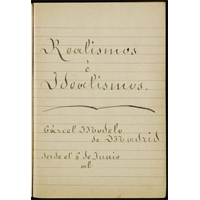 Realismos
é
Idealismos.
Cárcel Modelo
de Madrid
desde el 6 de Junio
al